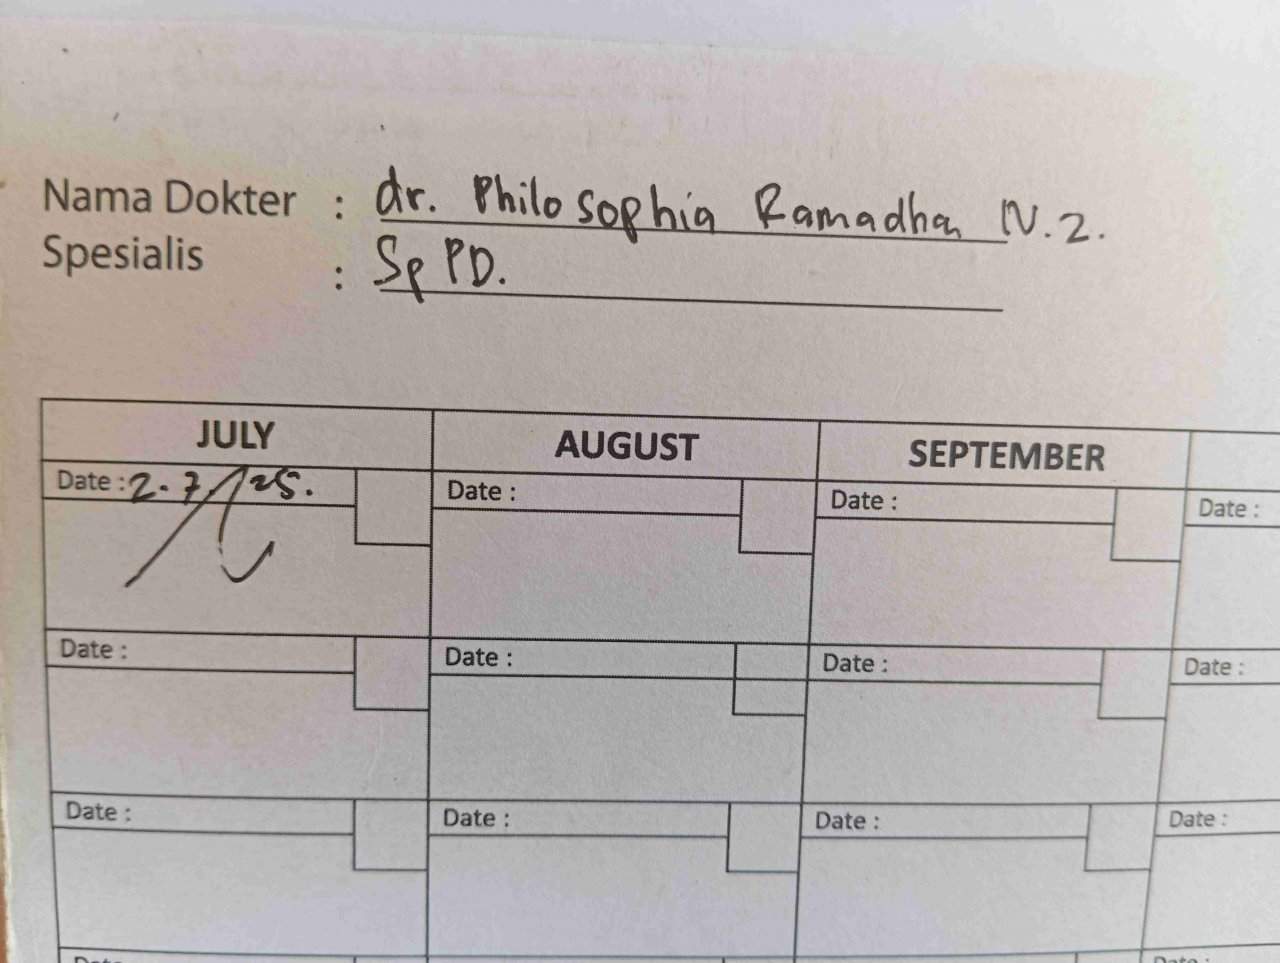 Nama Dokter : dr. Philosophia Ramadhan N.Z.
Spesialis : Sp PD.
JULY AUGUST SEPTEMBER
Date : 2.7/25. Date : Date : Date :
Date : Date : Date : Date :
Date : Date : Date : Date :
Date : Date :